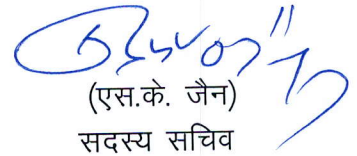 (एस.के. जैन)
सदस्य सचिव